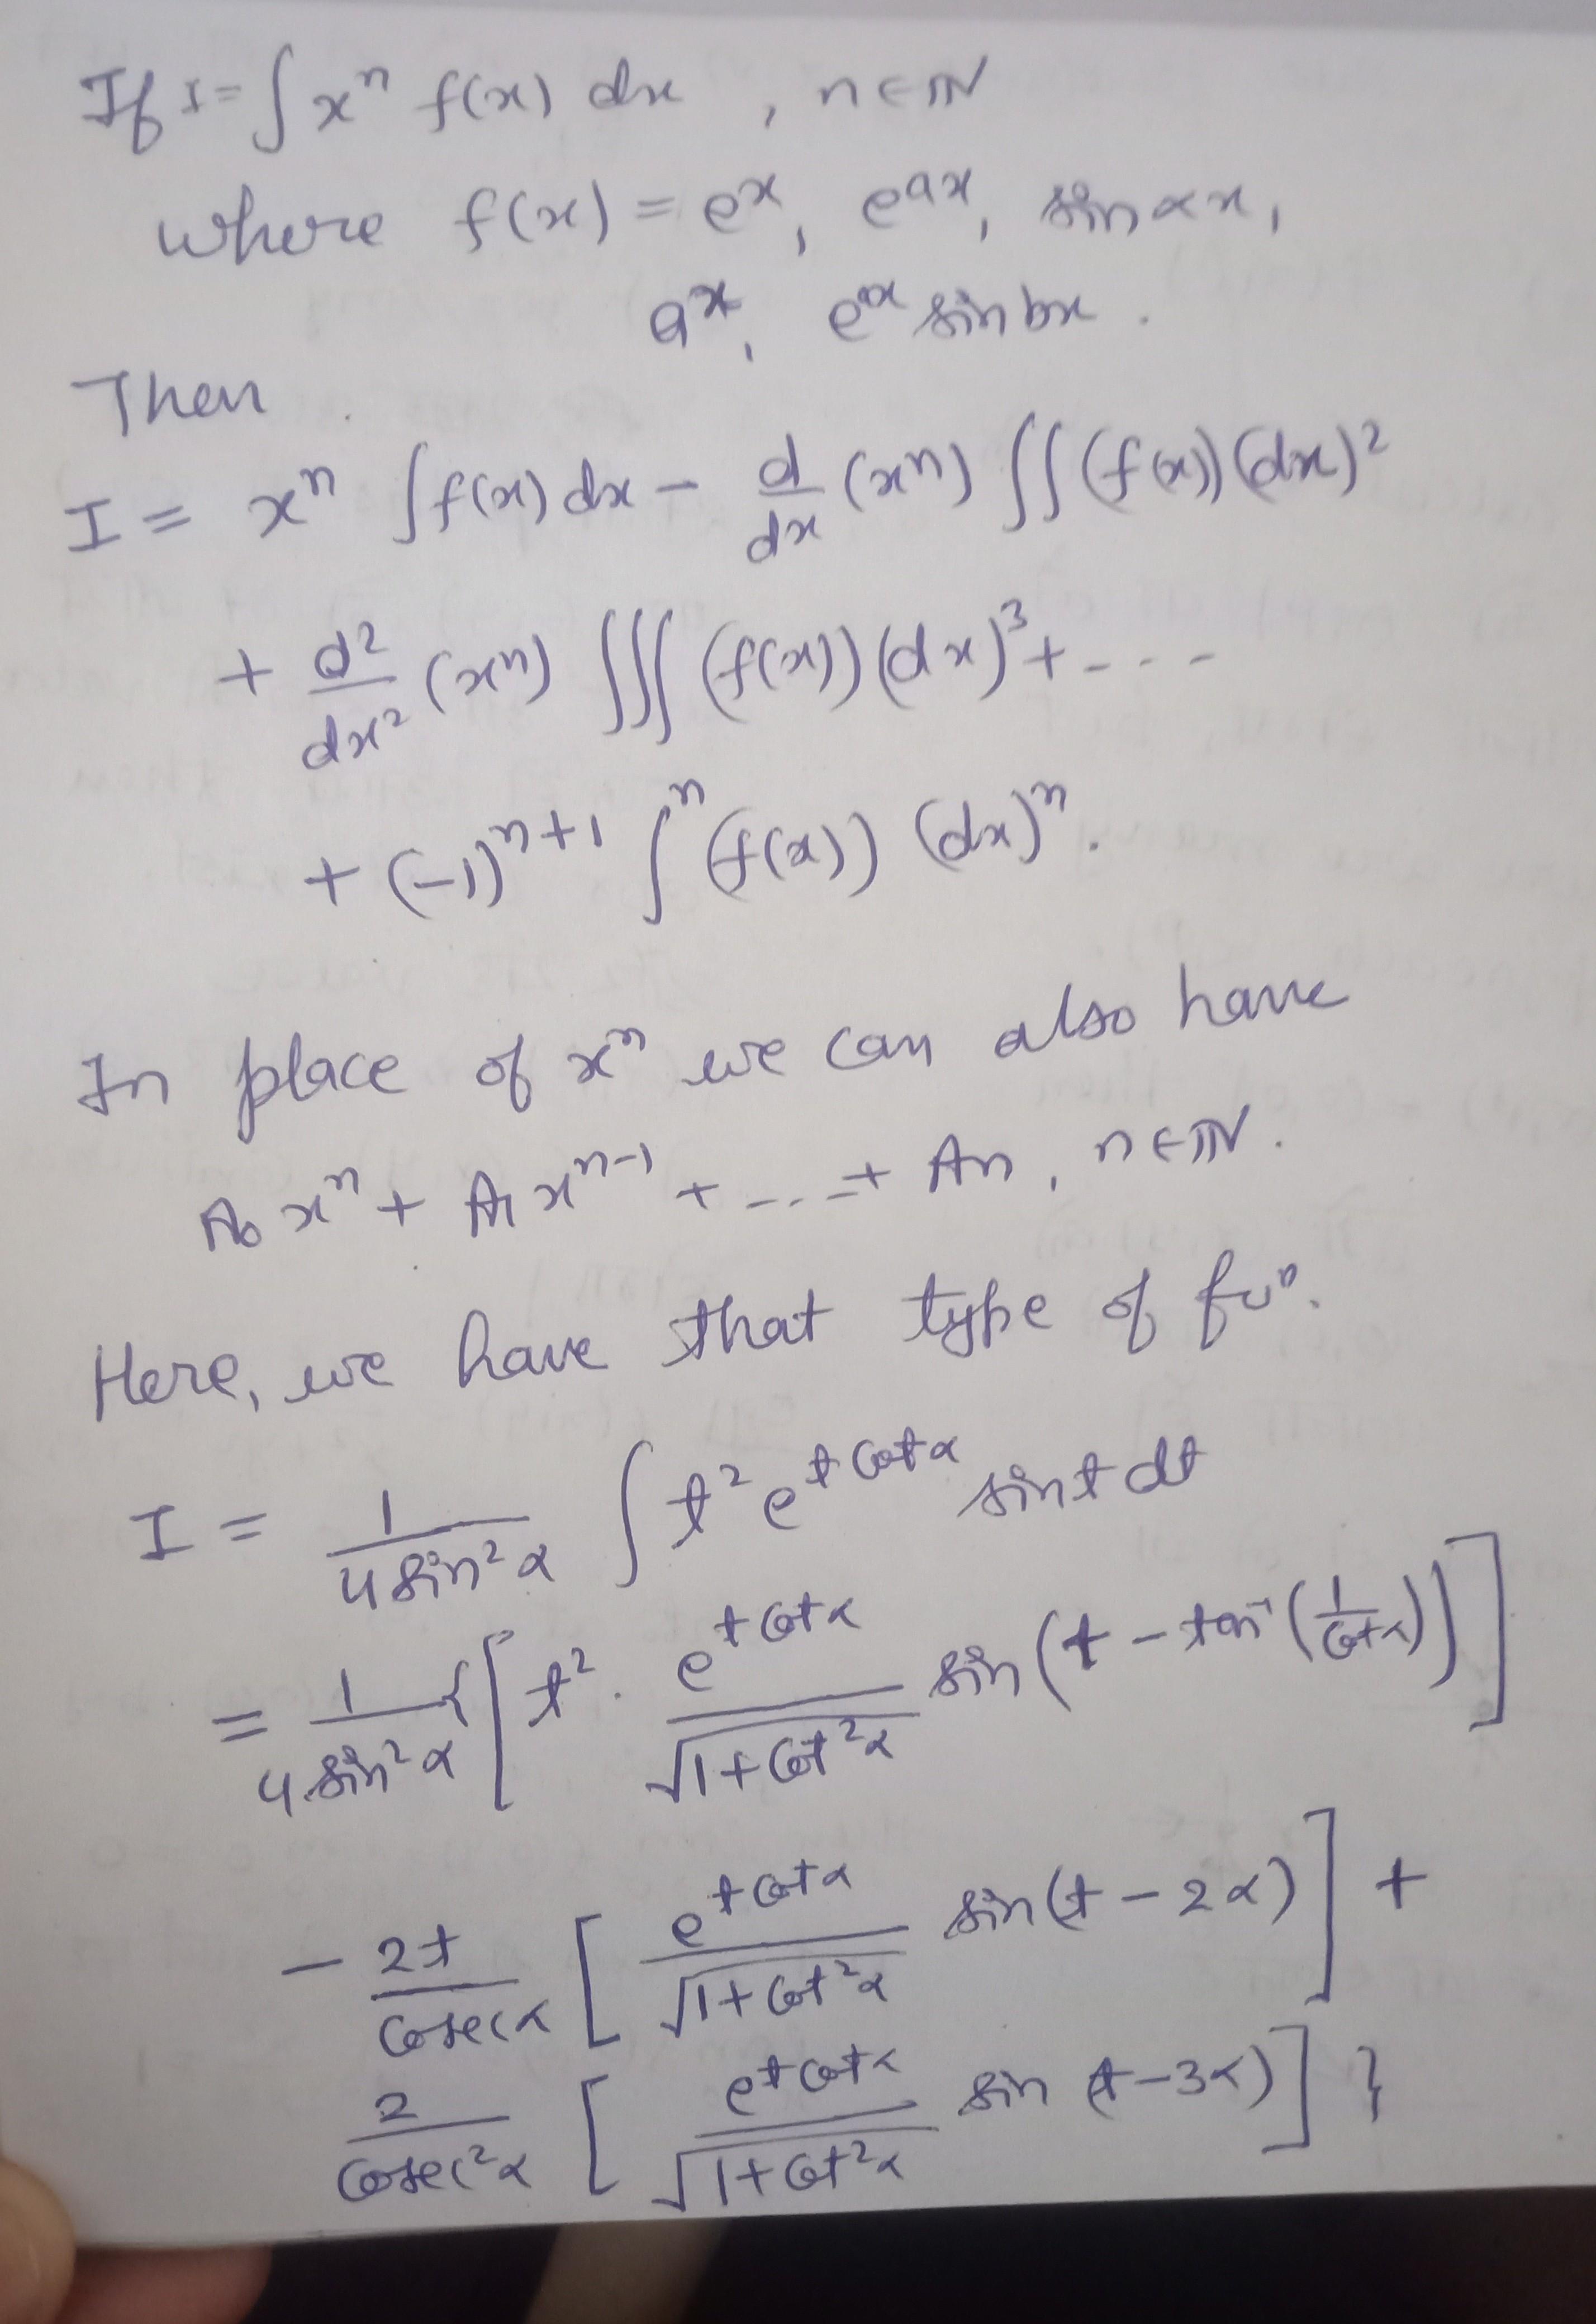 If I = ∫ xⁿ f(x) dx , n ∈ ℕ
where f(x) = eˣ, e^(ax), sin αx,
aˣ, e^(ax) sin bx .
Then
I = xⁿ ∫ f(x) dx − d/dx (xⁿ) ∫∫ (f(x)) (dx)²
+ d²/dx² (xⁿ) ∫∫∫ (f(x)) (dx)³ + - - -
+ (−1)ⁿ⁺¹ ∫ⁿ (f(x)) (dx)ⁿ.
In place of xⁿ we can also have
A₀ xⁿ + A₁ xⁿ⁻¹ + - - - + Aₙ , n ∈ ℕ.
Here, we have that type of fuⁿ.
I = 1/(4 sin²α) ∫ t² e^(t cot α) sin t dt
= 1/(4 sin²α) { [ t² . e^(t cot α)/√(1 + cot²α) sin (t − tan⁻¹ (1/cot α)) ]
− 2t/cosec α [ e^(t cot α)/√(1 + cot²α) sin (t − 2α) ] +
2/cosec²α [ e^(t cot α)/√(1 + cot²α) sin (t − 3α) ] }